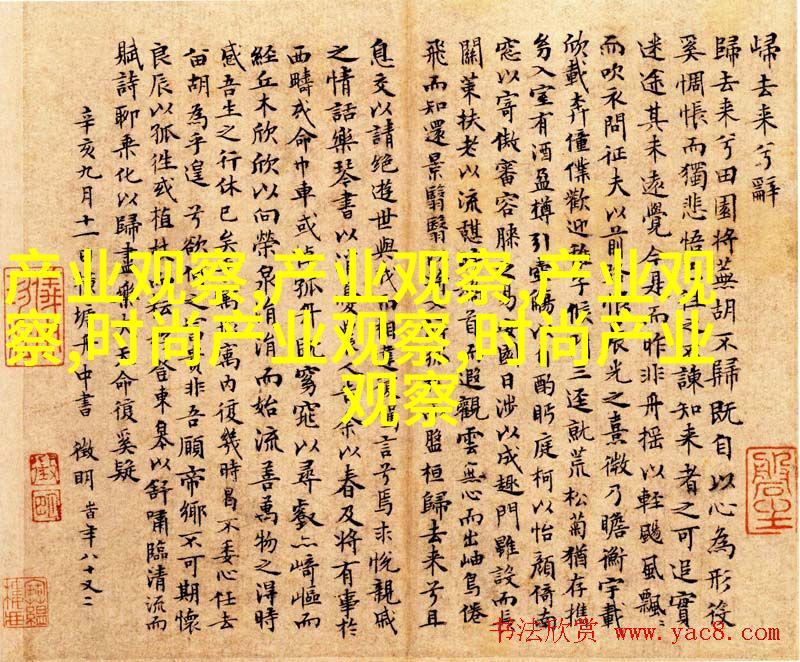 歸去来兮辭
歸去来兮田園將蕪胡不歸既自以心為形役
奚惆悵而獨悲悟之諫知来者之可追實
迷途其未遠覺今是而昨非舟摇以輕颺風飄〻
而吹衣問征夫以前恨晨光之熹微乃瞻衡宇載
欣載奔僮僕歡迎稚子候三逕就荒松菊猶存攜
幼入室有酒盈樽引壺觴以酌眄庭柯以怡顔倚南
窓以寄傲審容膝之易安園日涉以成趣門雖設而長
關策扶老以流憇首而遐觀雲無心而出岫鳥倦
飛而知還景翳翳以入孤盤桓歸去来兮且
息交以請絶遊世與我而相遺言兮焉求悦親戚
之情話樂琴書以憂人余以春及將有事於
西疇或命巾車或棹孤舟既窈窕以尋壑亦崎嶇而
經丘木欣欣以向榮泉涓涓而始流善萬物之得時
感吾生之行休已矣寓内復幾時曷不委心任去
留胡為乎遑兮欲何之貴非吾願帝鄉不可期懷
良辰以孤徃或植杖耘登東臯以舒嘯臨清流而
賦詩聊乗化以歸盡樂天命復奚疑
辛亥九月十一日塘舟中書 徵明 時年八十又二
产业观察,产业观察,产业观
察,时尚产业观察,时尚产业
观察
书法欣赏 www.yac8.com